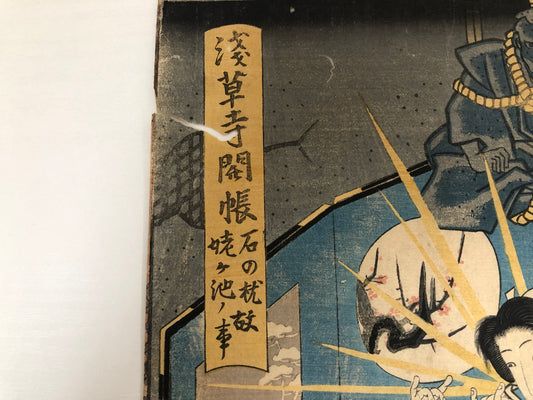 淺草寺開帳
石の枕故
姥ヶ池ノ事